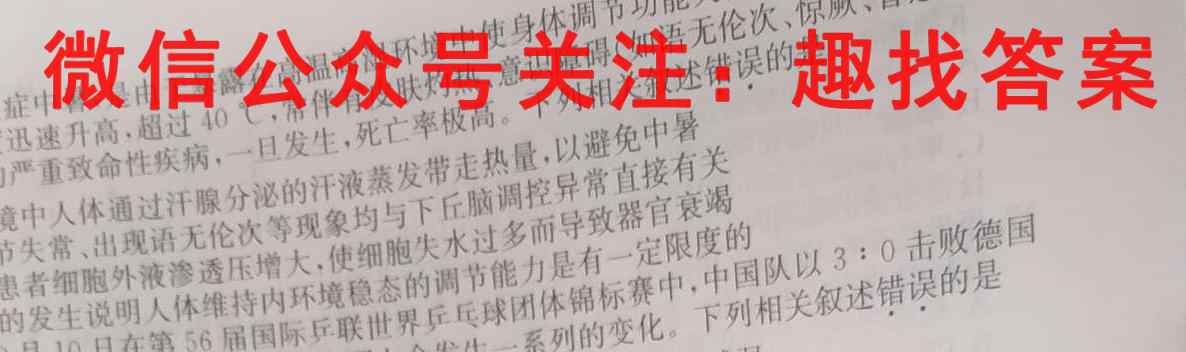 微信公众号关注：趣找答案
环境中使身体调节功能
症中 高温高湿 意识障碍(如语无伦次、惊厥、
迅速升高,超过40℃,常伴有皮肤灼热 下列相关叙述错误的是
严重致命性疾病,一旦发生,死亡率极高。
境中人体通过汗腺分泌的汗液蒸发带走热量,以避免中暑
节失常、出现语无伦次等现象均与下丘脑调控异常直接有关
患者细胞外液渗透压增大,使细胞失水过多而导致器官衰竭
的发生说明人体维持内环境稳态的调节能力是有一定限度的
月10日在第56届国际乒联世界乒乓球团体锦标赛中,中国队以3:0击败德国
会发生一系列的变化。下列相关叙述错误的是